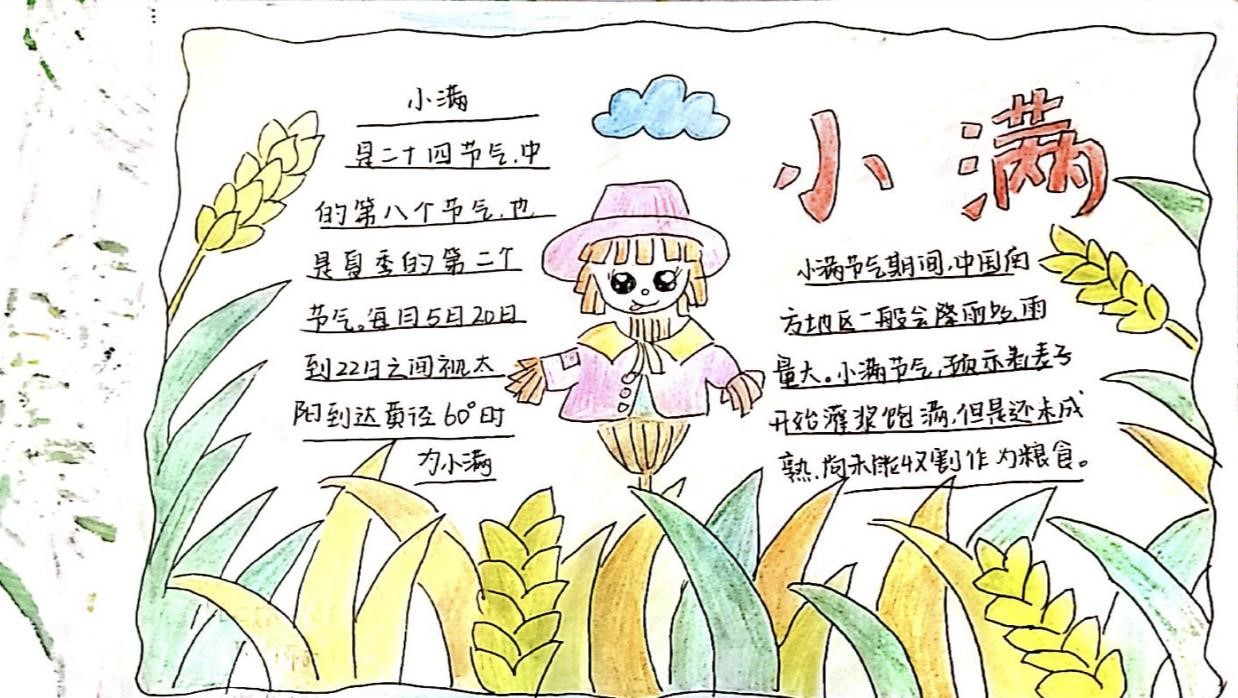 小满
是二十四节气.中
的第八个节气.也
是夏季的第二个
节气。每月5日20日
到22日之间视太
阳到达黄径60°时
为小满
小满
小满节气期间,中国南
方地区一般会降雨多,雨
量大。小满节气,预示着麦子
开始灌浆饱满,但是还未成
熟,尚未能收割作为粮食。